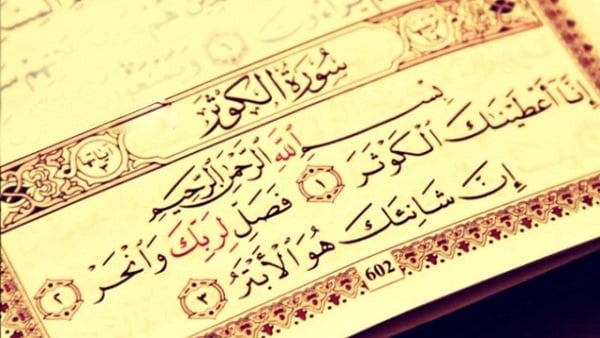 سُورَةُ الكَوْثَرِ
بِسْمِ ٱللَّهِ ٱلرَّحْمَٰنِ ٱلرَّحِيمِ
إِنَّآ أَعْطَيْنَٰكَ ٱلْكَوْثَرَ ١ فَصَلِّ لِرَبِّكَ وَٱنْحَرْ ٢
إِنَّ شَانِئَكَ هُوَ ٱلْأَبْتَرُ ٣
602